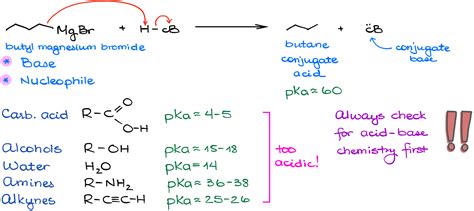 MgBr + H–B butane
butyl magnesium bromide
* Base
* Nucleophile
conjugate acid
pKa ≈ 60
:B
conjugate base
Carb. acid R–C O O–H pKa ≈ 4-5
Alcohols R–OH pKa ≈ 15-18
Water H₂O pKa = 14
Amines R–NH₂ pKa ≈ 36-38
Alkynes R–C≡C–H pKa ≈ 25-26
too acidic!
Always check
for acid-base
chemistry first
!!